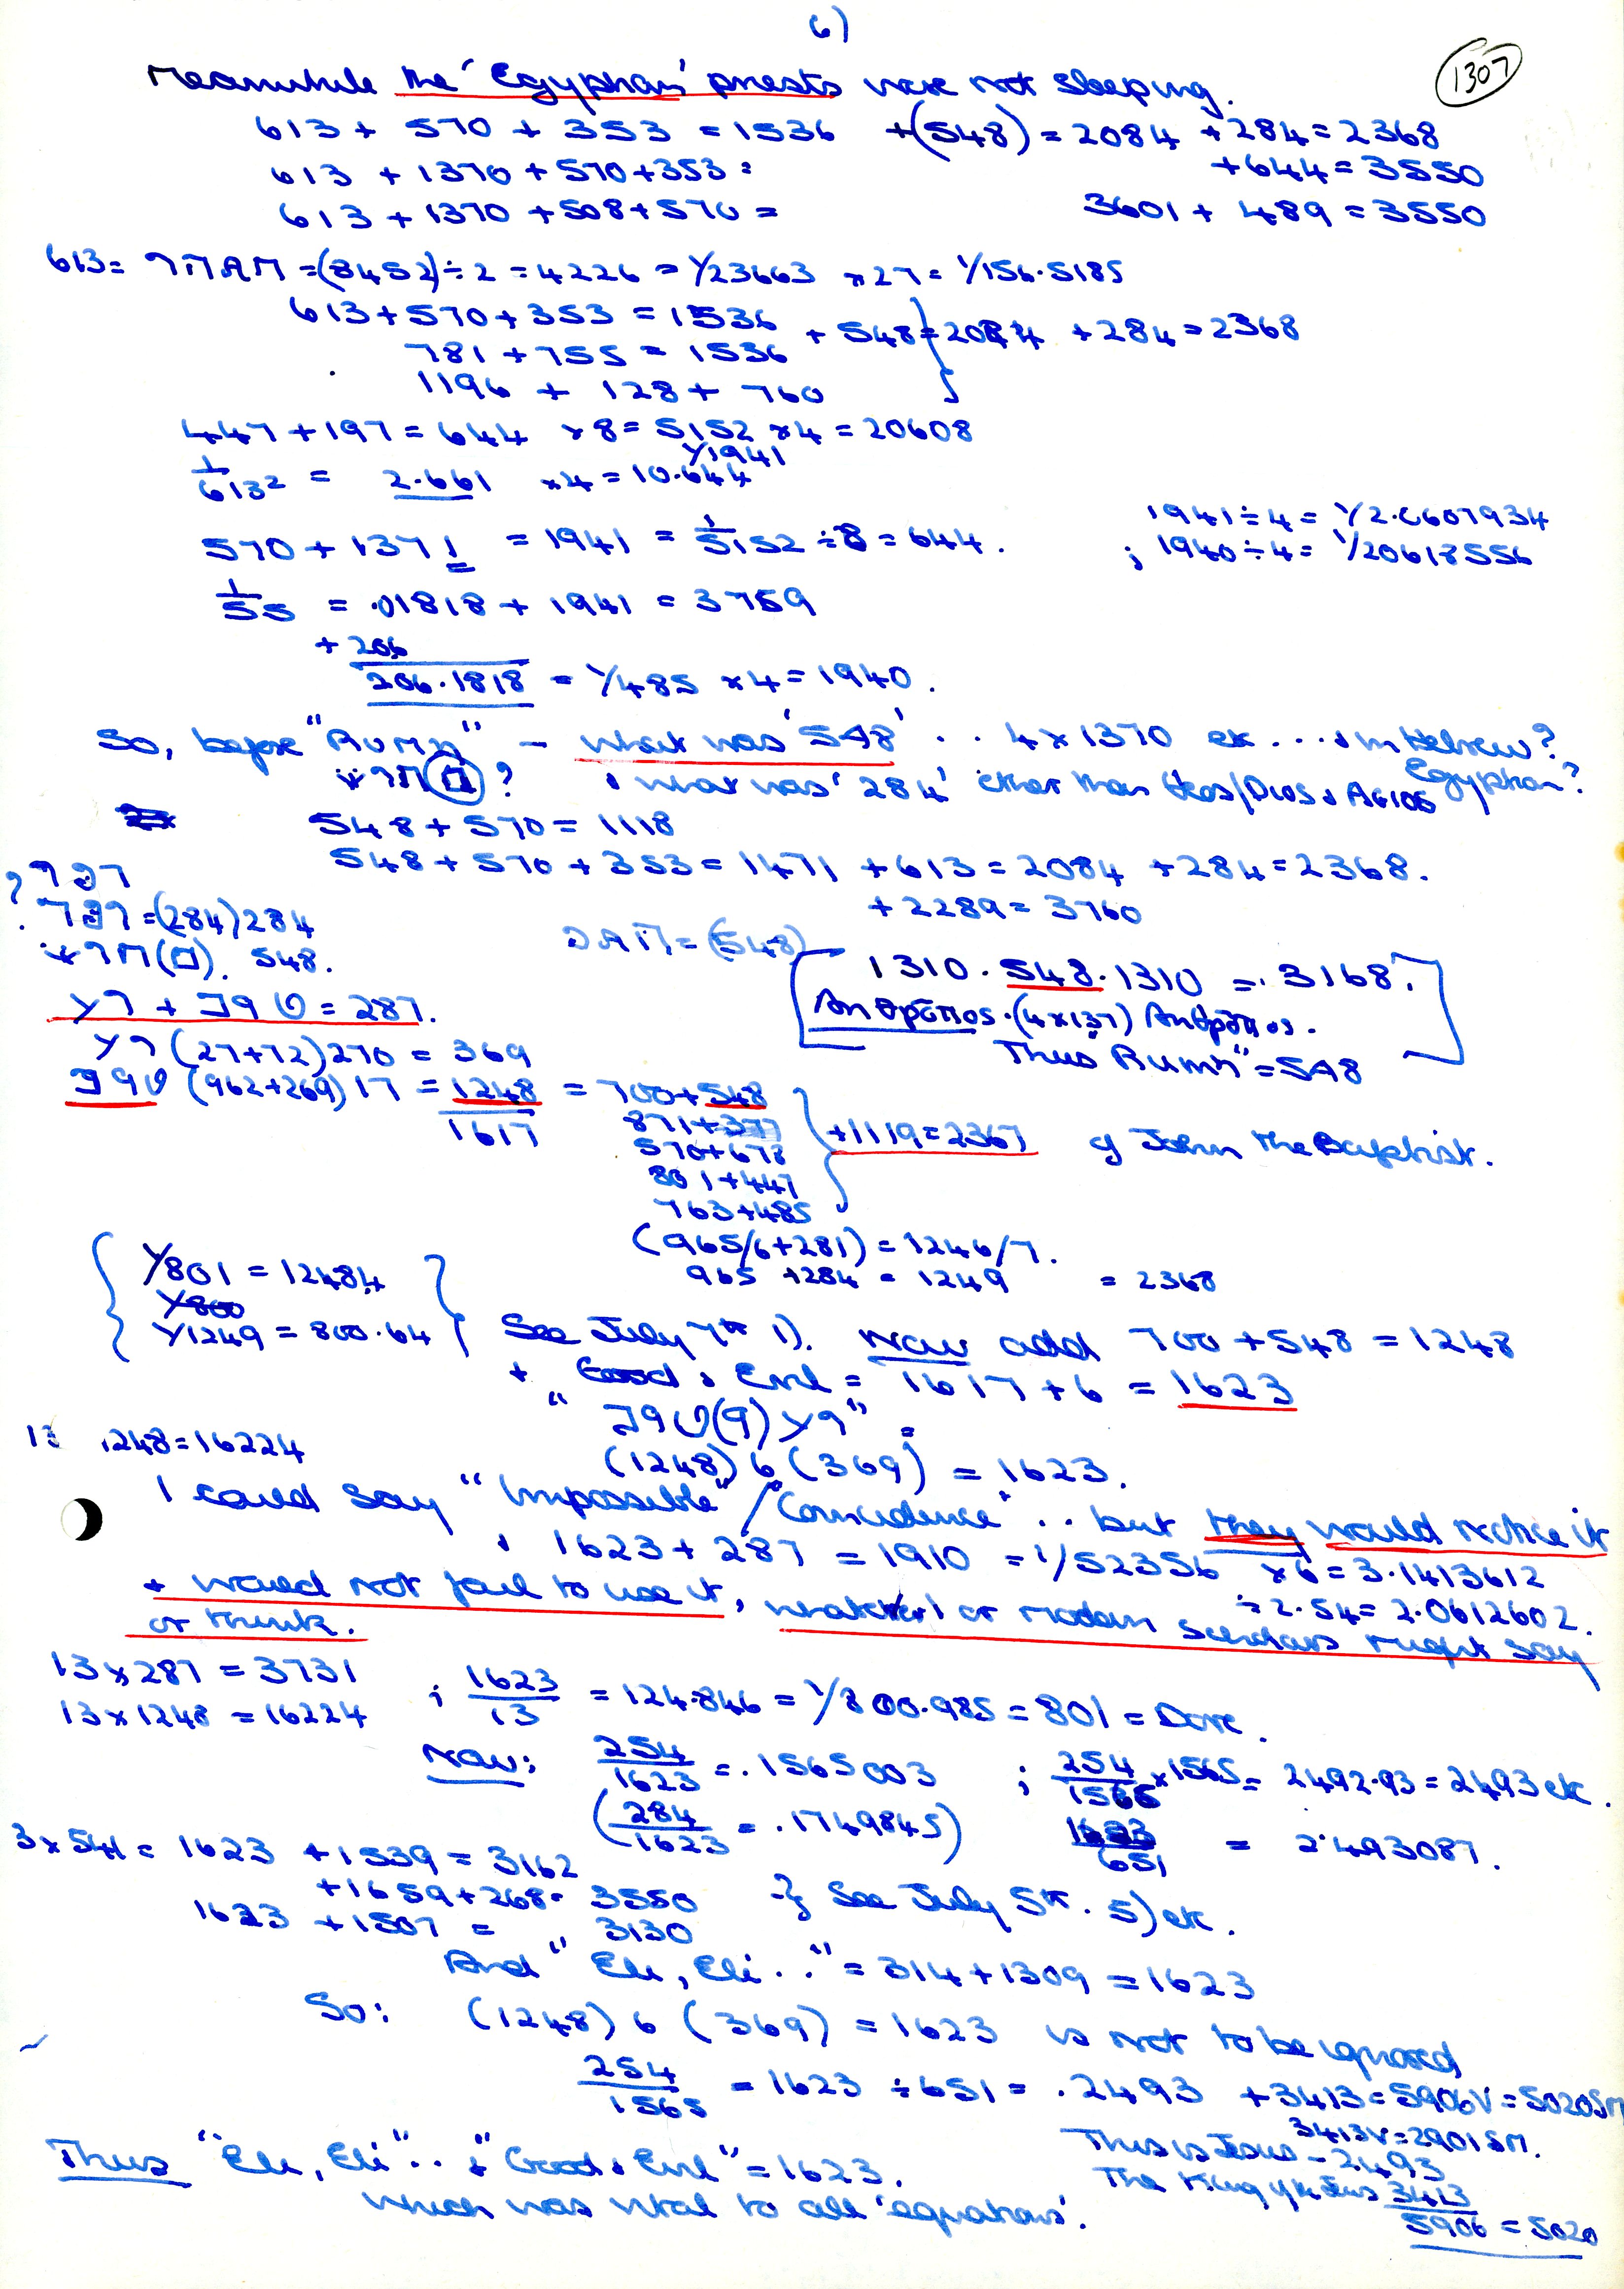 6)
1307
Meanwhile the 'Egyptian' priests were not sleeping.
613 + 570 + 353 = 1536 +(548) = 2084 + 284 = 2368
613 + 1370 + 570 + 353 = +644 = 3550
613 + 1370 + 508 + 570 = 3601 + 489 = 3550
613 = = (8452) ÷ 2 = 4226 = 1/23663 × 27 = 1/156.5185
613 + 570 + 353 = 1536 + 548 = 2084 + 284 = 2368
781 + 755 = 1536
1196 + 128 + 760
447 + 197 = 644 × 8 = 5152 × 4 = 20608
1/1941
1/613² = 2.661 × 4 = 10.644
1941 ÷ 4 = 1/2.0607934
570 + 1371! = 1941 = 1/5152 ÷ 8 = 644. ; 1940 ÷ 4 = 1/20618556
1/55 = .01818 + 1941 = 3759
+ 206
206.1818 = 1/485 × 4 = 1940.
So, before "Rumn" – what was '548' . . 4 × 1370 etc . . . & in Hebrew?
? & what was '284' other than Theos/Dios & Agios Egyptian?
548 + 570 = 1118
548 + 570 + 353 = 1471 + 613 = 2084 + 284 = 2368.
+ 2289 = 3760
= (284) 284
548.
= (548)
1310 . 548 . 1310 = . 3168.
Ανθρωπος . (4 × 137) Ανθρωπος.
Thus "Rumn" = 548
= 287.
(27+72) 270 = 369
(962+269) 17 = 1248 = 700 + 548
1617
871 + 377
570 + 678
801 + 447
763 + 485
+1119 = 2367 cf John the Baptist.
(965/6 + 281) = 1246/7.
965 + 284 = 1249 = 2368
1/801 = 12484
1/800
1/1249 = 800.64
See July 7th 1). Now add 700 + 548 = 1248
+ Good & Evil = 1617 + 6 = 1623
(1248) 6 (369) = 1623.
13 1248 = 16224
I could say "Impossible" / "Coincidence" . . but they would notice it
& 1623 + 287 = 1910 = 1/52356 × 6 = 3.1413612
+ would not fail to use it, whatever I or modern scholars might say
÷ 2.54 = 2.0612602.
or think.
13 × 287 = 3731
13 × 1248 = 16224
; 1623/13 = 124.846 = 1/800.985 = 801 = Dove.
Now: 254/1623 = .1565003 ; 254/1566 × 1565 = 2492.93 = 2493 etc.
(284/1623 = .1749845) 1623/651 = 2.493087.
3 × 541 = 1623 + 1539 = 3162
+ 1659 + 268 = 3550 } See July 5th. 5) etc.
1623 + 1507 = 3130
And "Eli, Eli . ." = 314 + 1309 = 1623
So: (1248) 6 (369) = 1623 is not to be ignored,
254/1565 = 1623 ÷ 651 = .2493 + 3413 = 5906V = 5020SM
3413V = 2901SM.
Thus "Eli, Eli" . . & "Good & Evil" = 1623.
which was vital to all 'equations'.
This is Jesus – 2493
The King of the Jews 3413
5906 = 5020